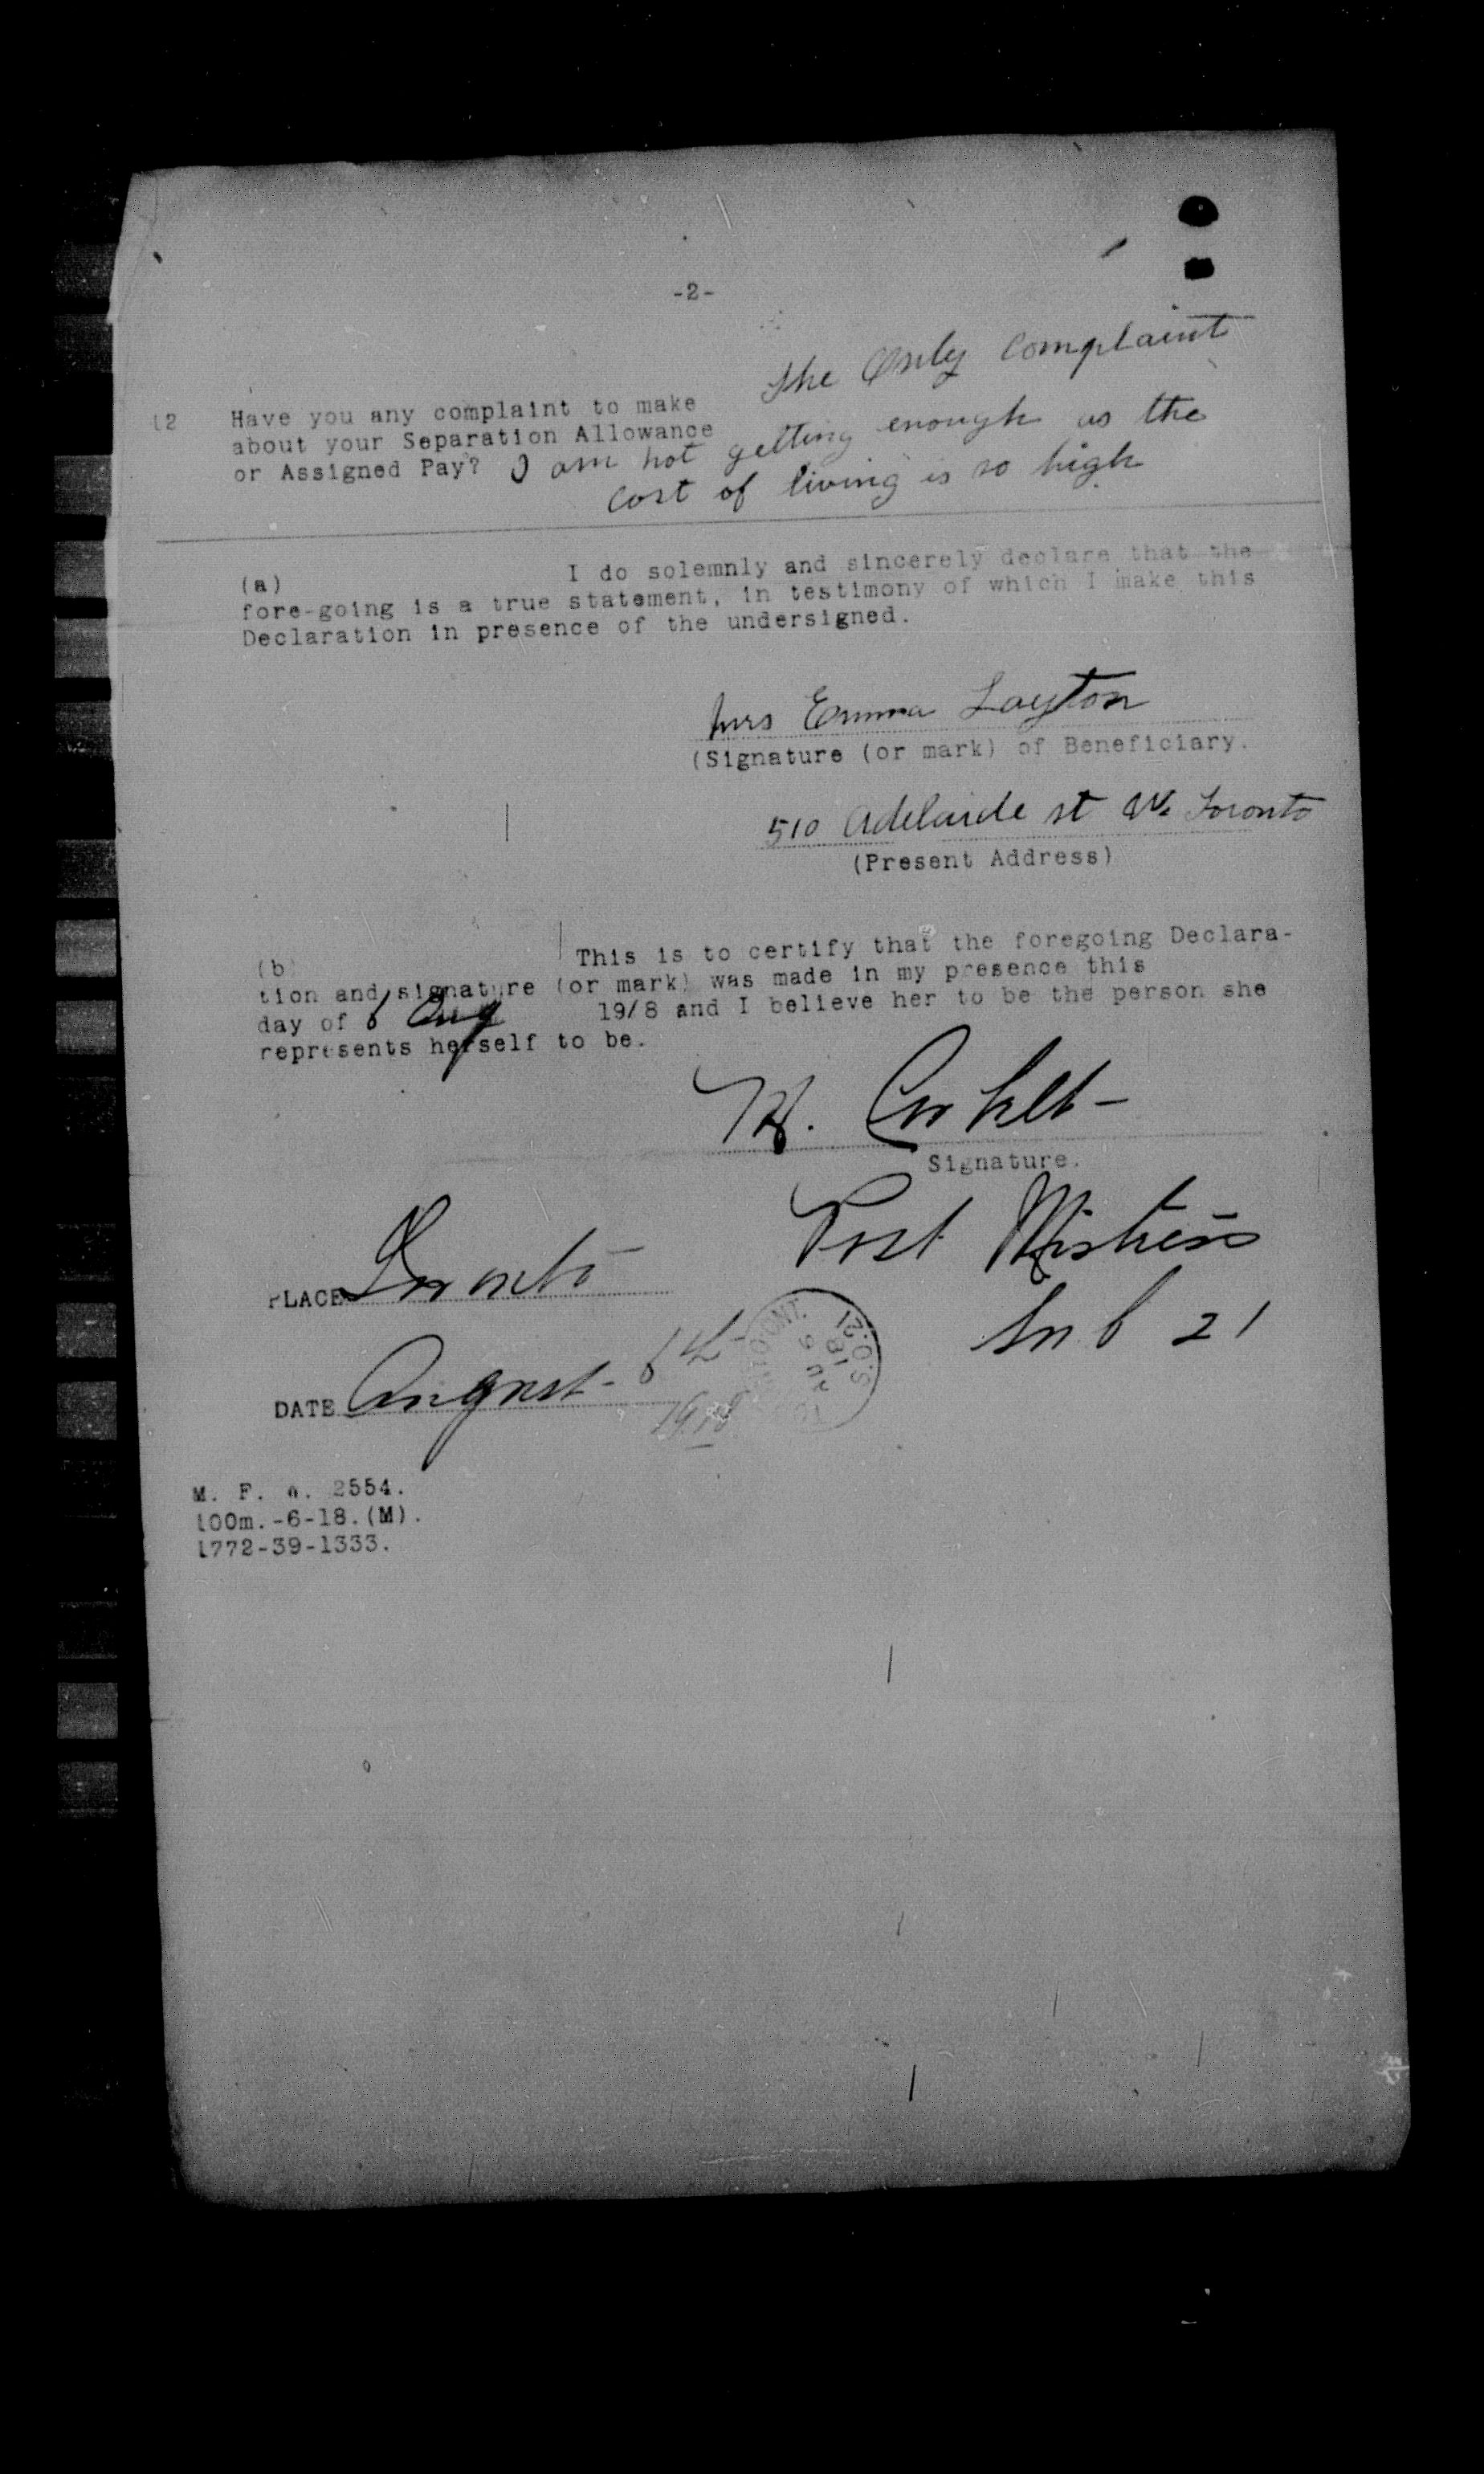 -2-
The Only complaint
12 Have you any complaint to make
about your Separation Allowance
or Assigned Pay? I am not getting enough as the
cost of living is so high
(a) I do solemnly and sincerely declare that the
fore-going is a true statement, in testimony of which I make this
Declaration in presence of the undersigned.
Mrs Emma Layton
(Signature (or mark) of Beneficiary.
510 Adelaide st W. Toronto
(Present Address)
(b) This is to certify that the foregoing Declara-
tion and signature (or mark) was made in my presence this
day of 6 Aug 19/8 and I believe her to be the person she
represents herself to be.
Signature.
Post Mistress
PLACE Toronto
Sub 21
DATE August 6th
1918
S.O.21
AU 6
18
M. F. 2554.
100m.-6-18.(M).
1772-39-1333.